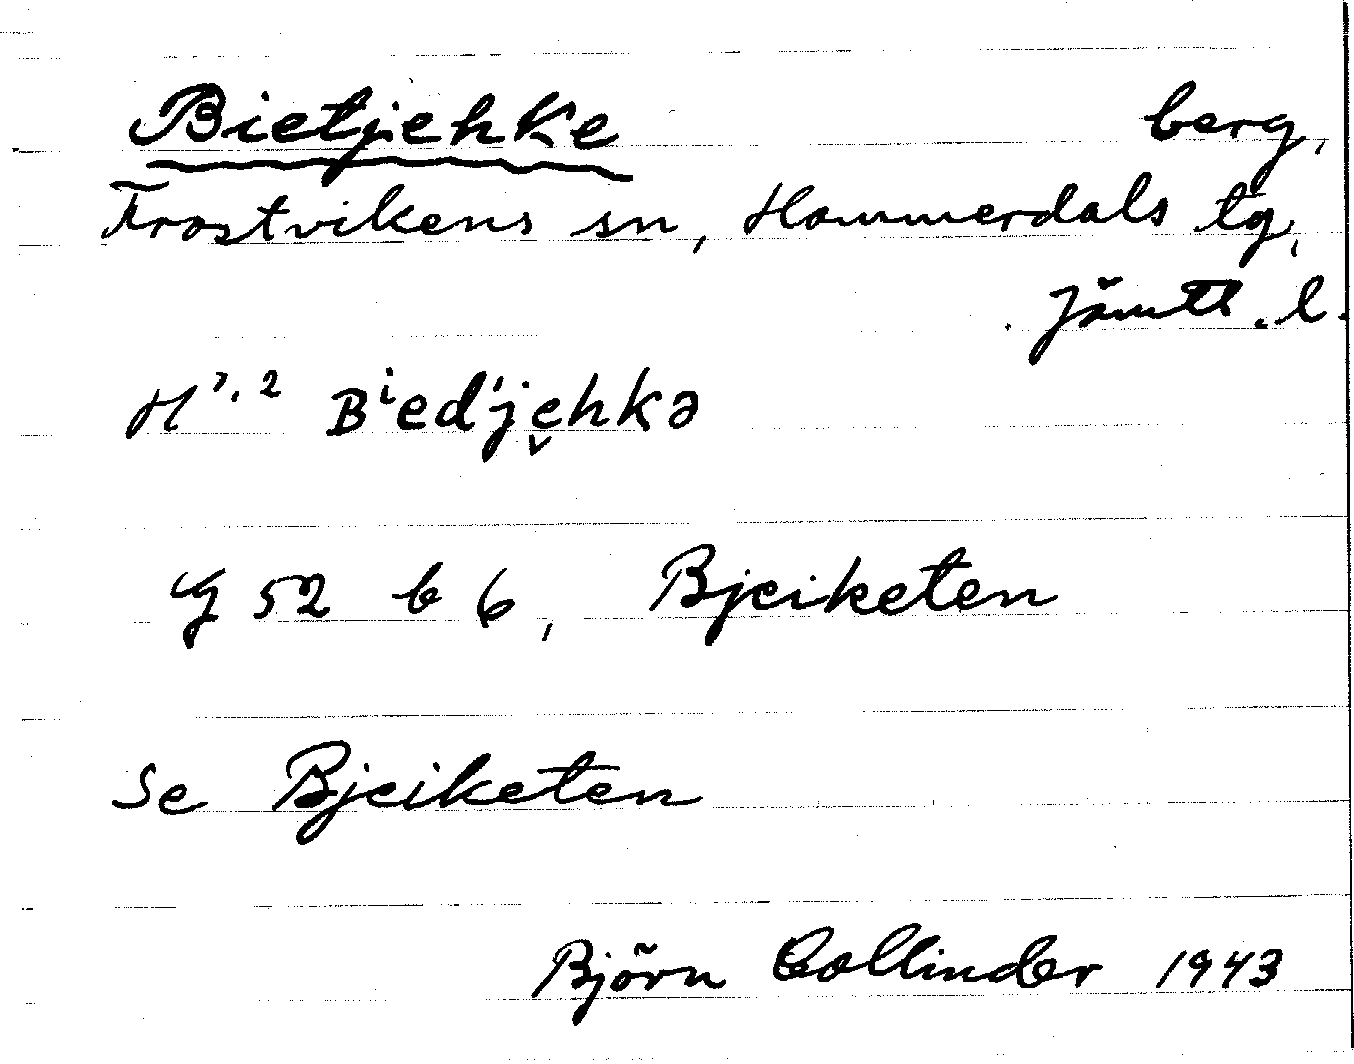 Bietjehke berg,
Frostvikens sn, Hammerdals tg,
Jämtl. l.
H¹·² Bⁱed'je̬hkə
G 52 b 6, Bjeiketen
Se Bjeiketen
Björn Collinder 1943